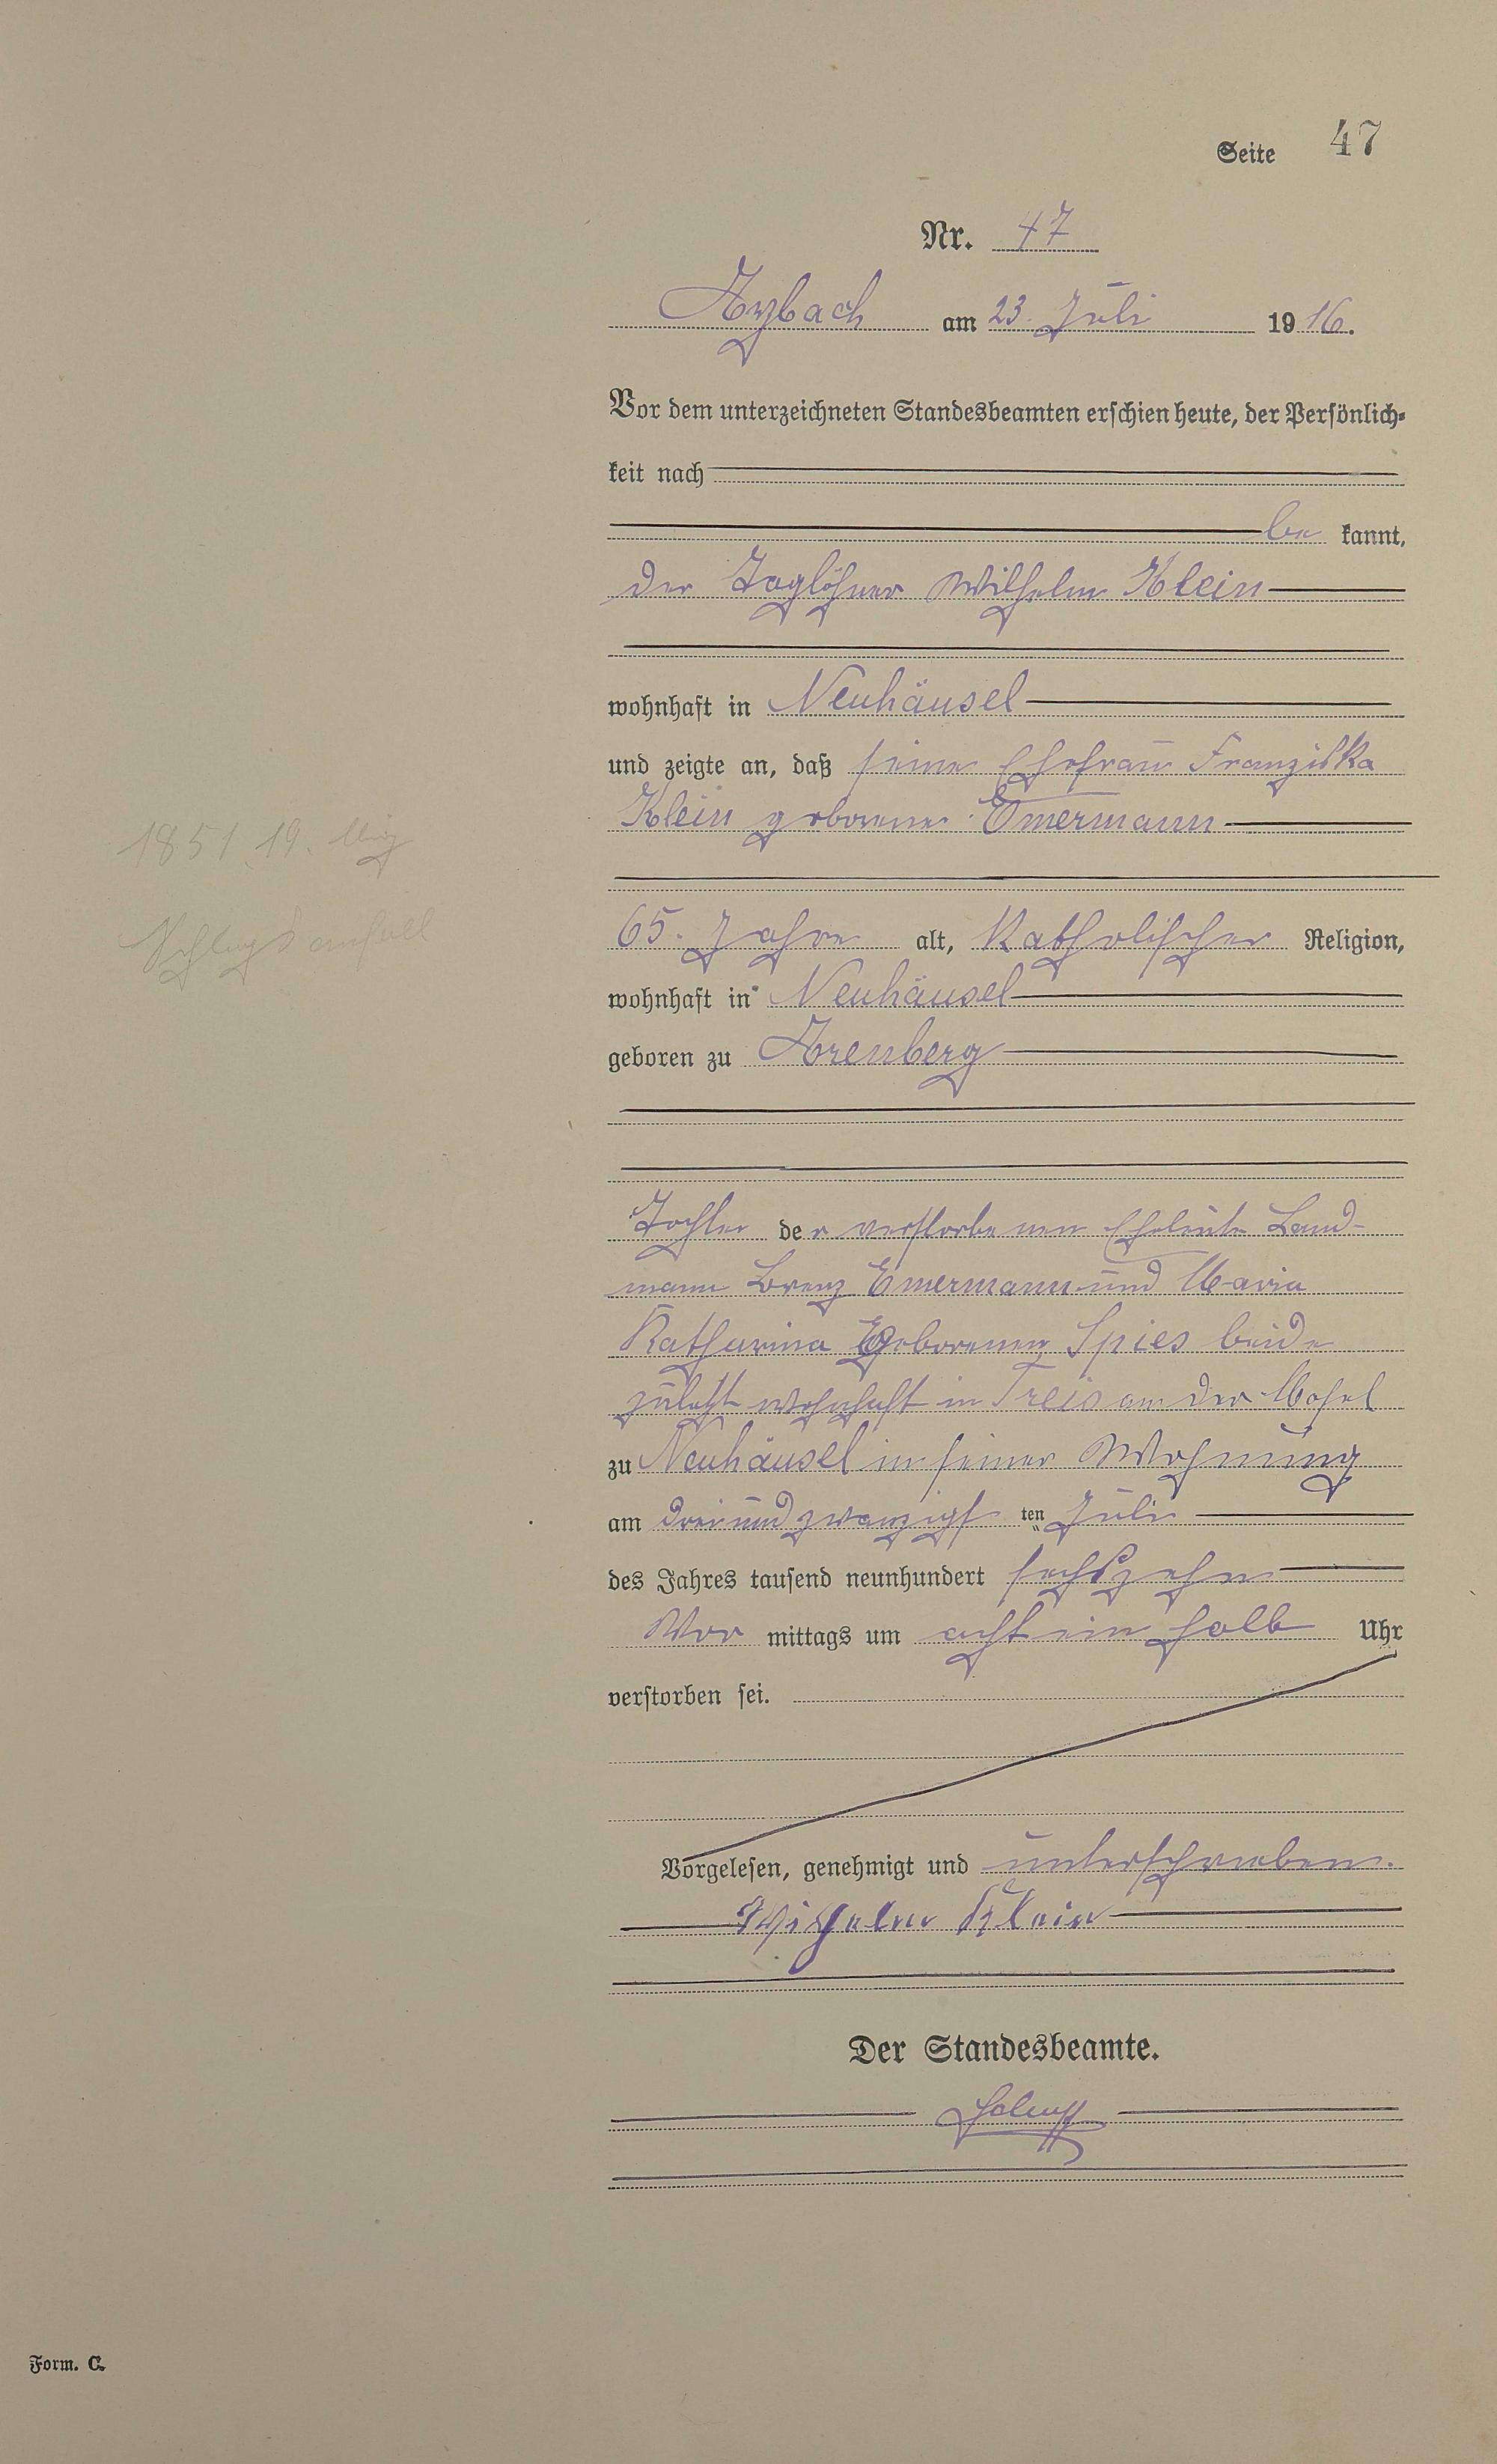 Seite 47
Nr. 47
Arzbach am 23. Juli 1916.
Vor dem unterzeichneten Standesbeamten erschien heute, der Persönlich-
keit nach
be kannt,
der Taglöhner Wilhelm Klein
wohnhaft in Neuhäusel
und zeigte an, daß seine Ehefrau Franziska
Klein geborene Emermann
1851 19.
65. Jahre alt, Katholischer Religion,
Schlagsanfall
wohnhaft in Neuhäusel
geboren zu Arenberg
Tochter der verstorbenen Eheleute Land-
mann Lorenz Emermann und Maria
Katharina geborenen Spies beide
zuletzt wohnhaft in Treis an der Mosel
zu Neuhäusel in seiner Wohnung
am dreiundzwanzigst ten Juli
des Jahres tausend neunhundert sechszehn
Vor mittags um acht ein halb Uhr
verstorben sei.
Vorgelesen, genehmigt und unterschrieben.
Wilhelm Klein
Der Standesbeamte.
Form. C.